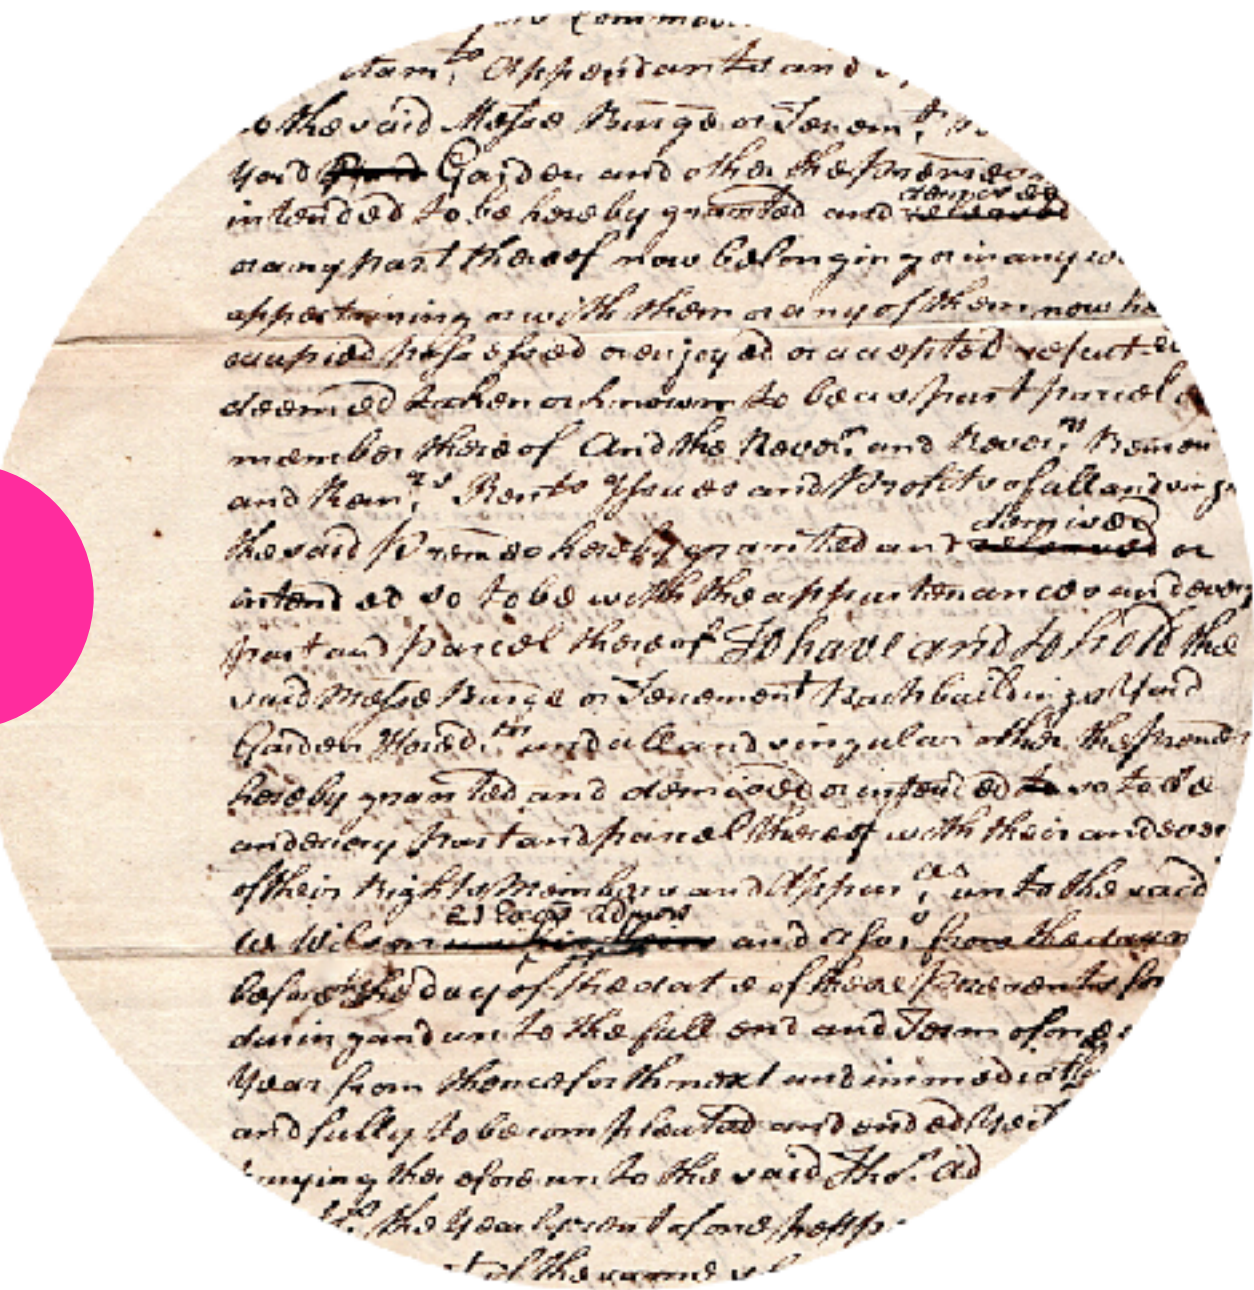 Appendants and
the said Messe Buage or Tenemt.
Yard Garden and other the Premes
intended to be hereby granted and demised released
or any part thereof now belonging or in any
appertaining or with them or any of them now
occupied possessed or enjoyed or accepted reput.ed
deemed taken or known to be as part parcel
member thereof And the Rever. and Rever.ns Remen
and Rem. Rents Yssues and Profitts of all and
the said Premes hereby granted and demised released or
intended so to be with the appurtenances and every
part and parcel thereof To have and to hold the
said Messe Buage or Tenement Backbuildings Yard
Garden Heredi.ts and all and singular other the Premes
hereby granted and demised or intended to so to be
and every part and parcel thereof with their and
of their Rights Members and Appur.ces unto the said
Wilson Exors Admrs and from
before the day of the date of these Presents for
during and unto the full end and Term of one
Year from thenceforth next and immediately
and fully to be compleated and ended
paying therefore unto the said Thos. Ad
the Yearly rent of one
of the same